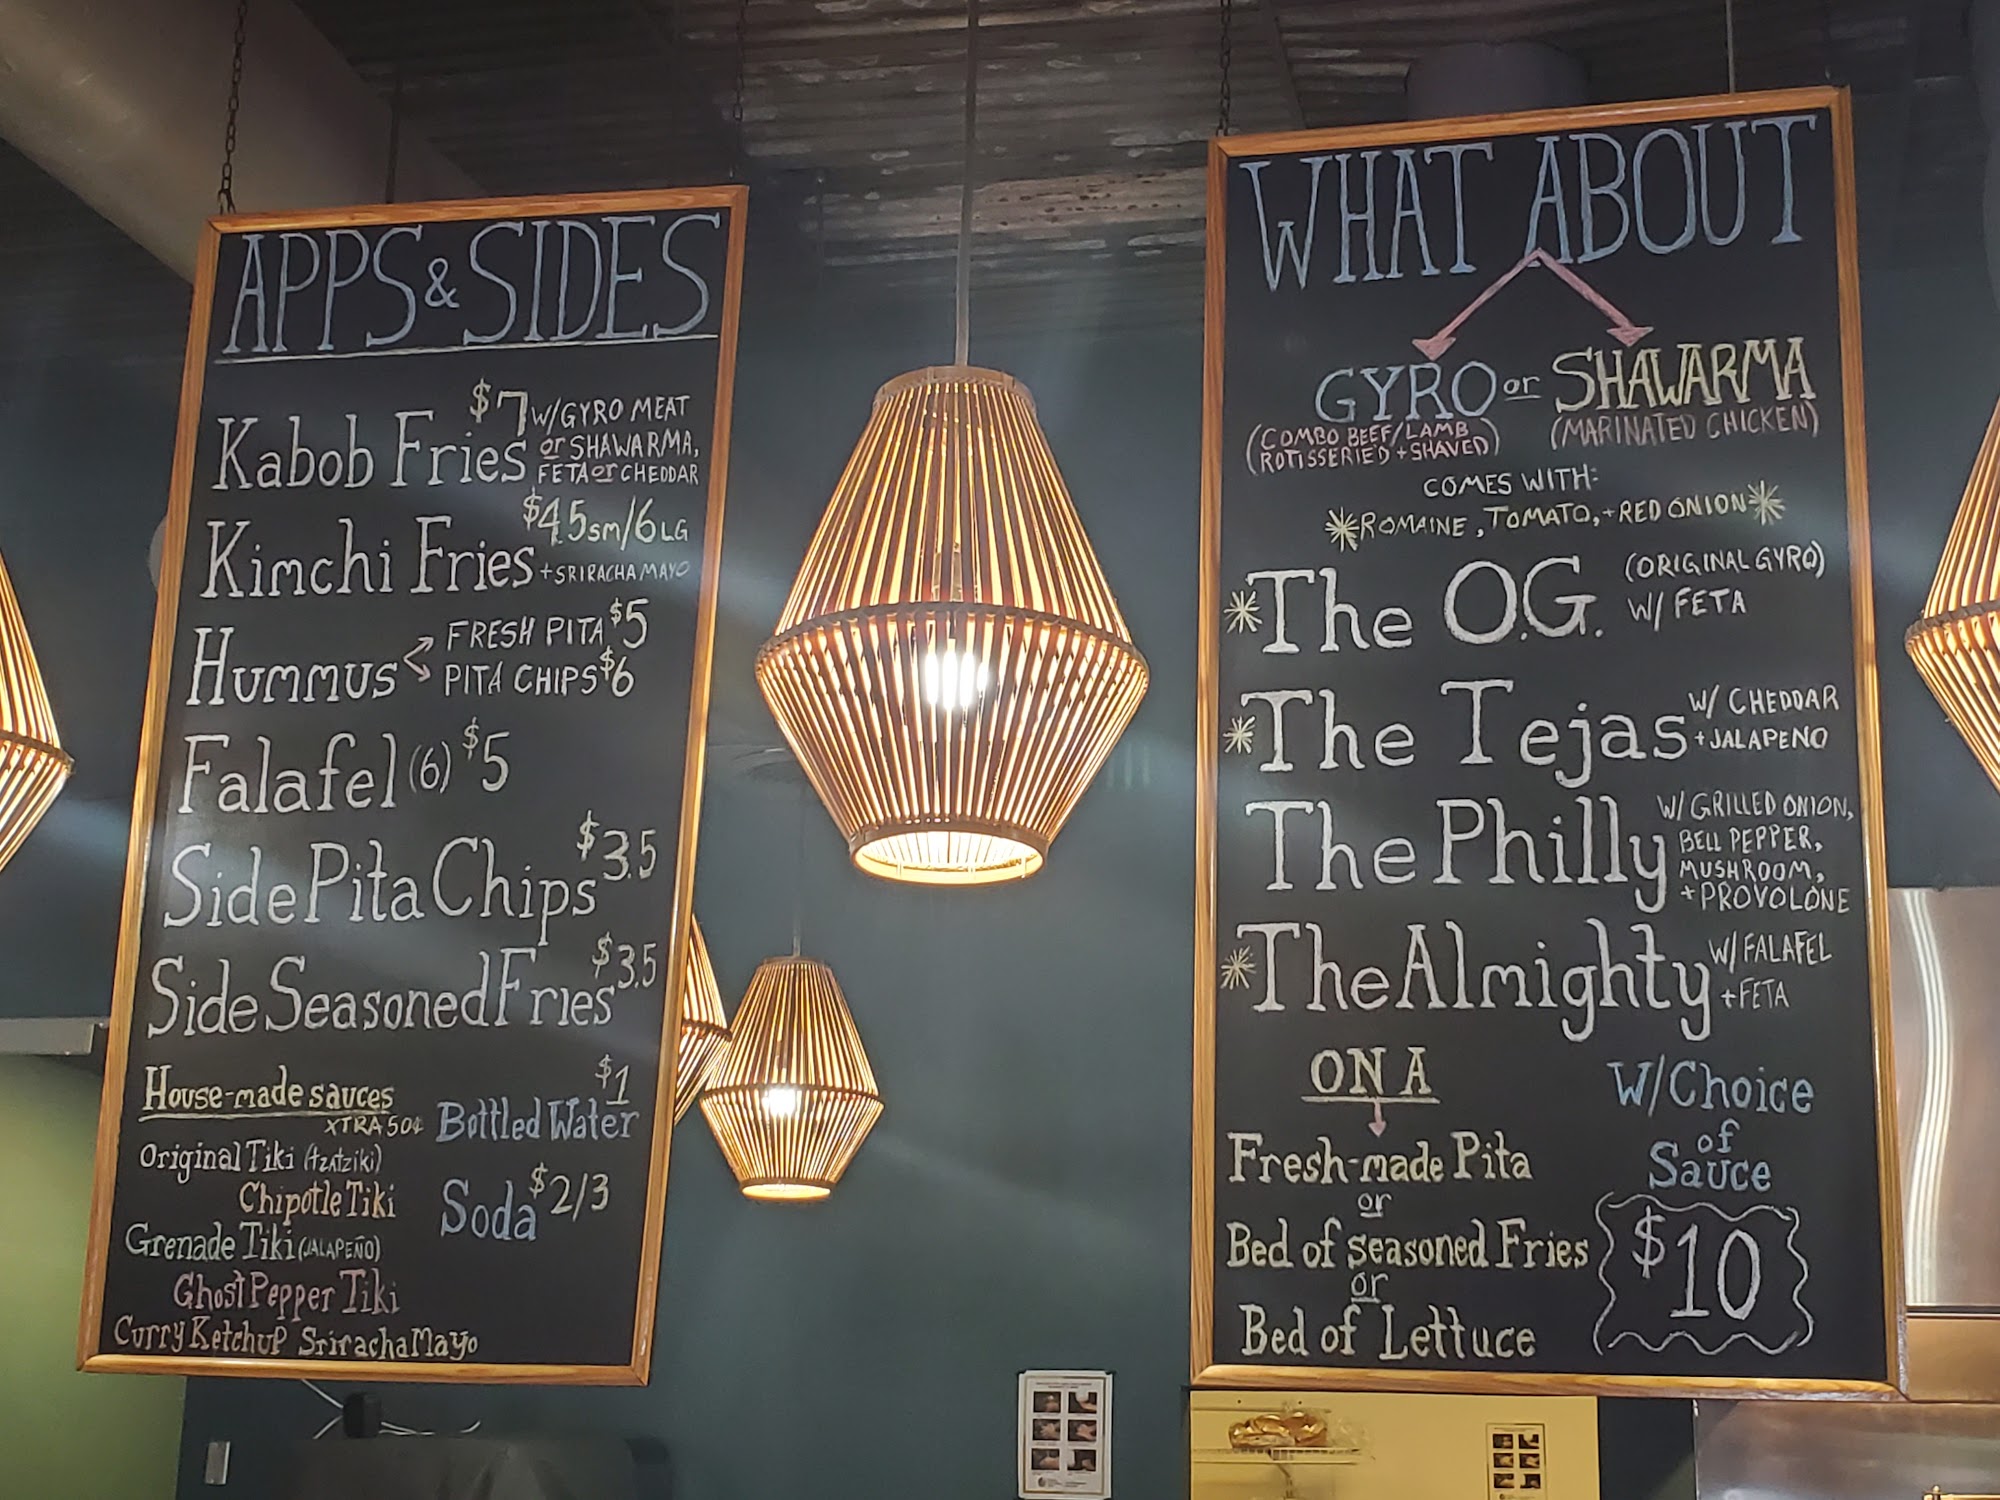 APPS & SIDES
Kabob Fries $7 W/ GYRO MEAT
or SHAWARMA,
FETA or CHEDDAR
Kimchi Fries $4.5 SM/6 LG
+ SRIRACHA MAYO
Hummus FRESH PITA $5
PITA CHIPS $6
Falafel (6) $5
Side Pita Chips $3.5
Side Seasoned Fries $3.5
House-made sauces
XTRA 50¢
Original Tiki (tzatziki)
Chipotle Tiki
Grenade Tiki (JALAPEÑO)
Ghost Pepper Tiki
Curry Ketchup Sriracha Mayo
Bottled Water $1
Soda $2/3
WHAT ABOUT
GYRO or SHAWARMA
(COMBO BEEF/LAMB
ROTISSERIED + SHAVED)
(MARINATED CHICKEN)
COMES WITH:
*ROMAINE, TOMATO, + RED ONION*
*The O.G. (ORIGINAL GYRO)
W/ FETA
*The Tejas W/ CHEDDAR
+ JALAPENO
The Philly W/ GRILLED ONION,
BELL PEPPER,
MUSHROOM,
+ PROVOLONE
*The Almighty W/ FALAFEL
+ FETA
ON A
Fresh-made Pita
or
Bed of seasoned Fries
or
Bed of Lettuce
W/ Choice
of
Sauce
$10